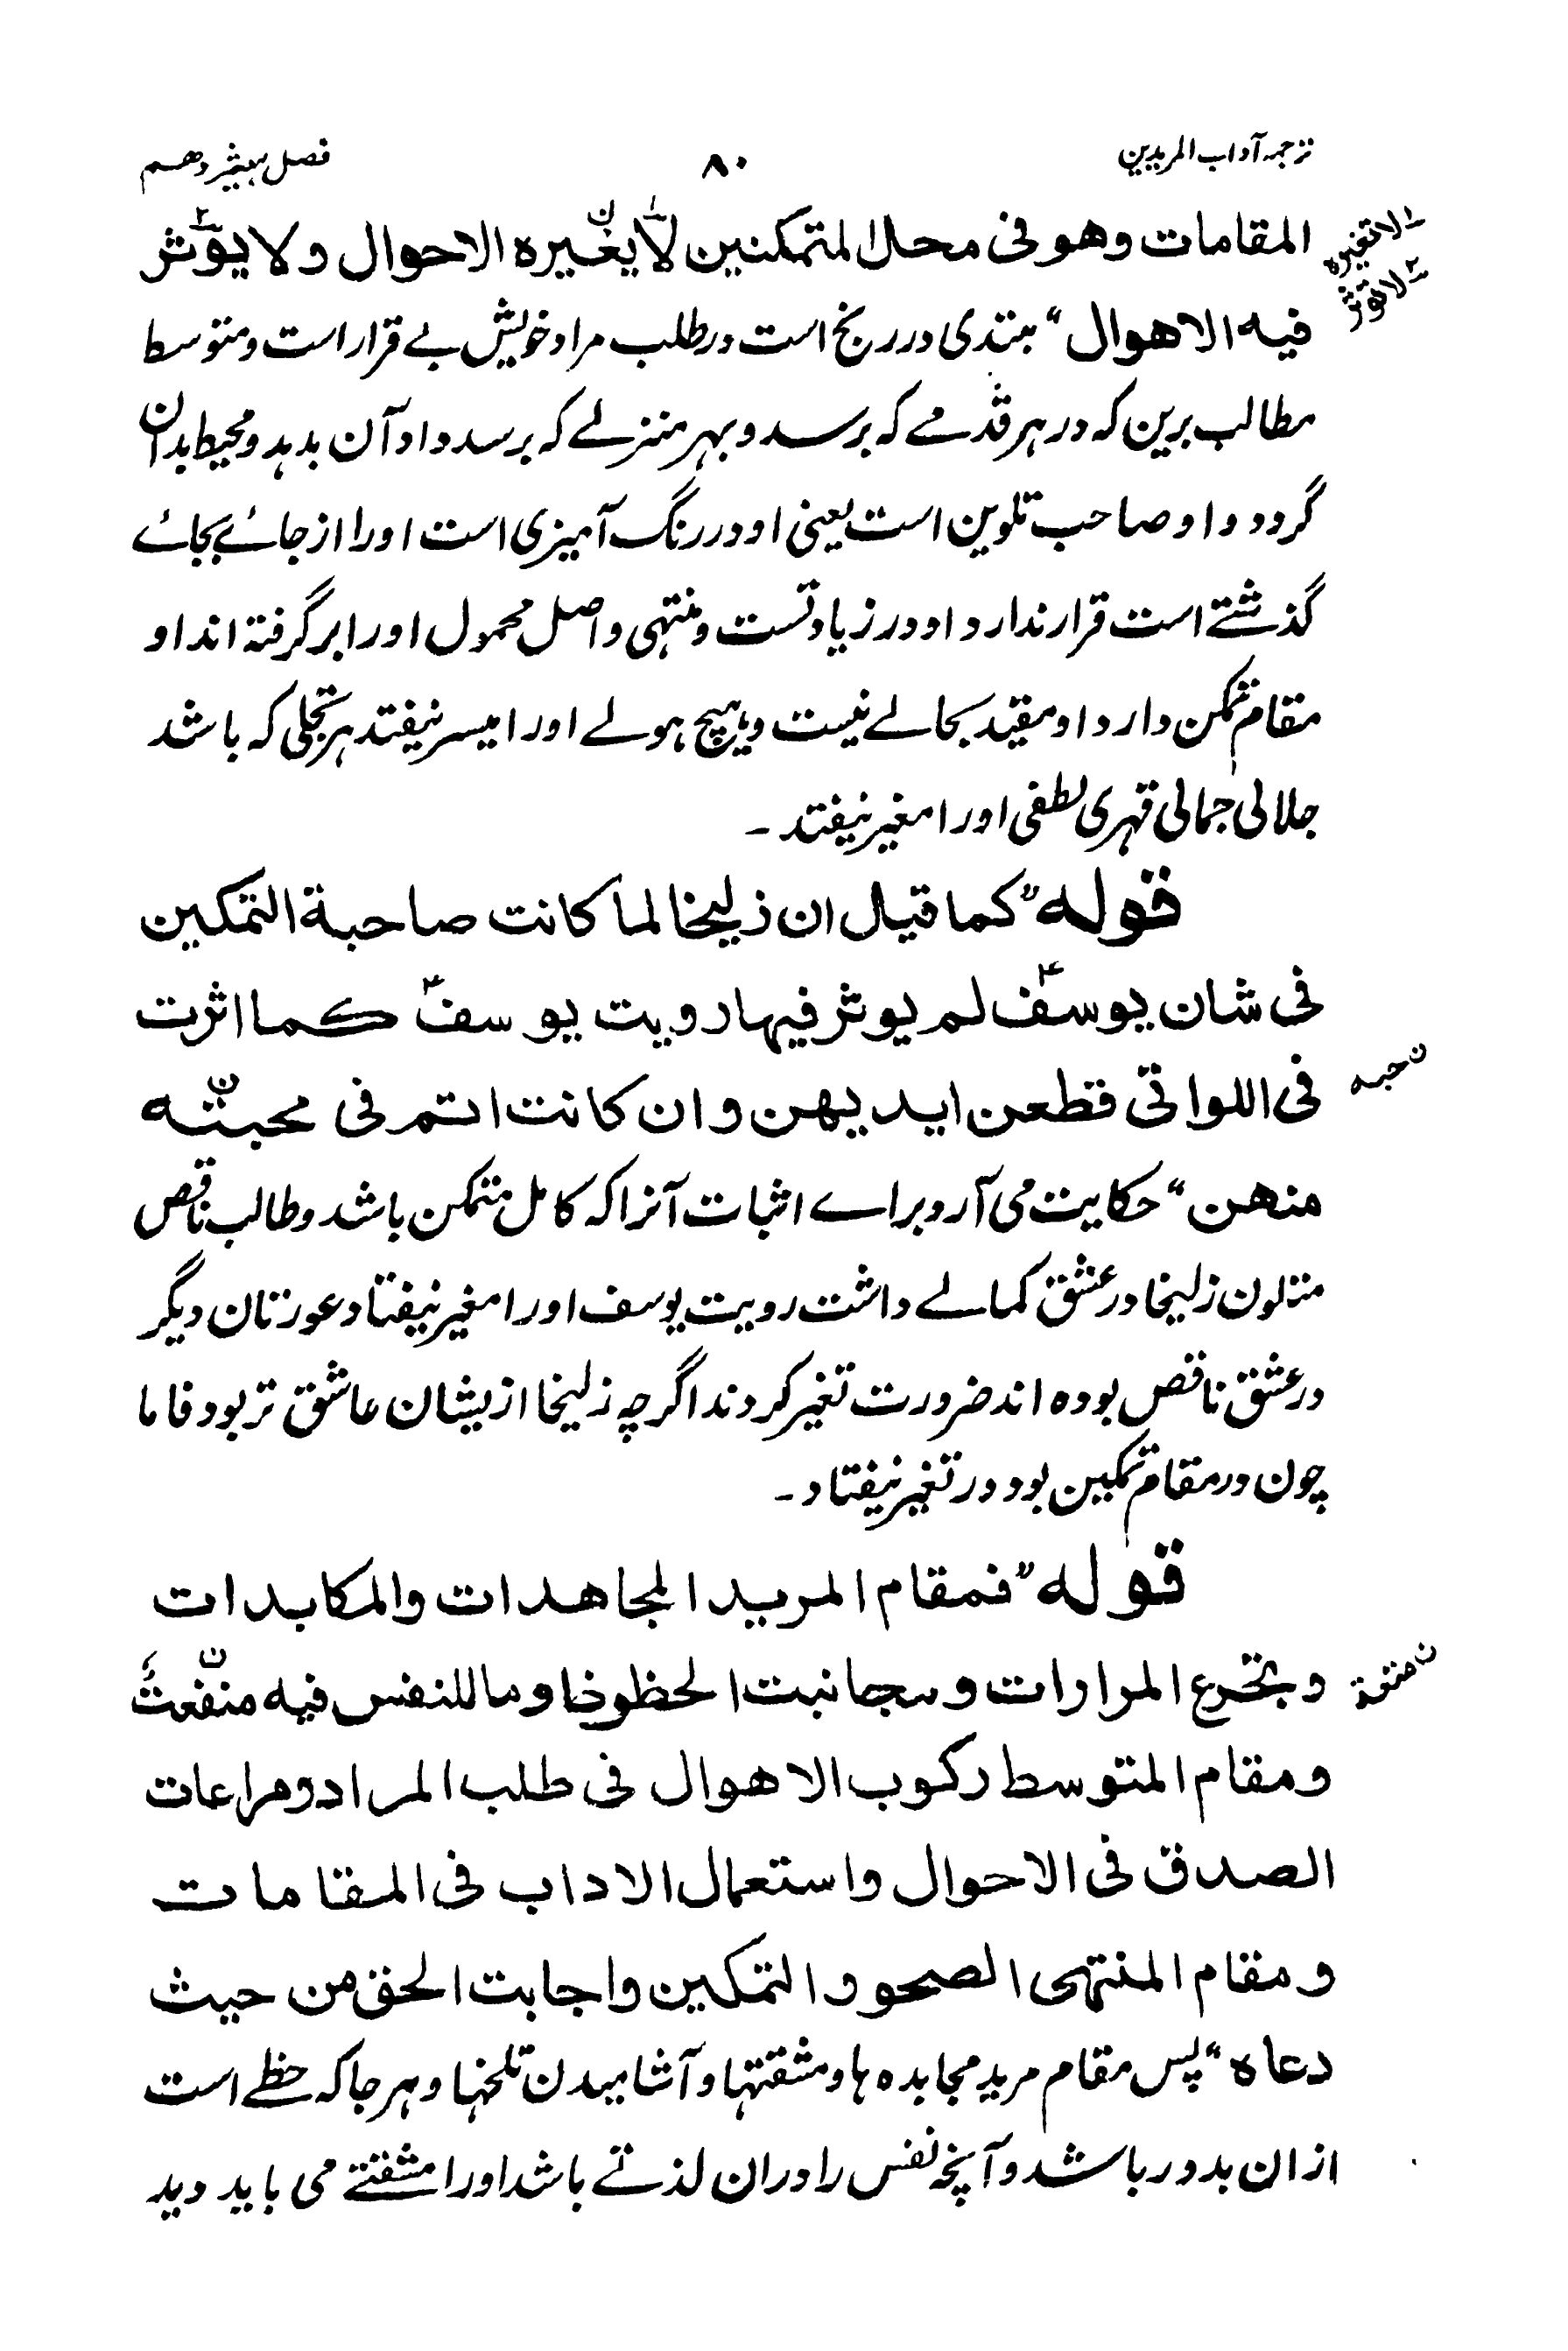 ترجمہ آداب المریدین ۸۰ فصل ہیثردھم
المقامات وھو فی محل المتمکنین لا یغیرہ الاحوال ولا یؤثر
۱؎ لا تغیرہ
۲؎ لا تؤثر
فیہ الاھوال“ مبتدی در رنج است در طلب مراد خویش بے قرار است و متوسط
مطالب برین کہ در ہر قدمے کہ برسد و بہر منزلے کہ برسد داد آن بدہد و محیط بدان
گردد و او صاحب تلوین است یعنی او در رنگ آمیزی است او را از جائے بجائے
گذشتے است قرار ندارد او در زیادتست و منتہی واصل محمول او را برگرفتہ اند او
مقام تمکن دارد او مقید بحالے نیست و ہیچ ہولے او را میسر نیفتد ہر تجلی کہ باشد
جلالی جمالی قہری لطفی او را مغیر نیفتد ۔
قولہ ”کما قیل ان زلیخا لما کانت صاحبۃ التمکین
فی شان یوسفؑ لم یوثر فیہا رویت یوسفؑ کما اثرت
فی اللواتی قطعن ایدیہن وان کانت اتم فی محبتہ
ن حبہ
منھن“ حکایت می آرد براے اثبات آنرا کہ کامل متمکن باشد و طالب ناقص
متلون زلیخا در عشق کمالے داشت رویت یوسف او را مغیر نیفتاد عورتان دیگر
در عشق ناقص بودہ اند ضرورت تغیر کردند اگرچہ زلیخا ازیشان عاشق تر بود فاما
چون در مقام تمکین بود در تغیر نیفتاد ۔
قولہ ”فمقام المرید المجاھدات والمکابدات
وتجرع المرارات ومجانبت الحظوظ وما للنفس فیہ منفعت
ن متعۃ
ومقام المتوسط رکوب الاھوال فی طلب المراد ومراعات
الصدق فی الاحوال واستعمال الاداب فی المقامات
ومقام المنتہی الصحو والتمکین واجابت الحق من حیث
دعاہ“ پس مقام مرید مجاہدہ ہا و مشقتہا و آشامیدن تلخہا و ہر جا کہ حظے است
ازان بدور باشد و آنچہ نفس را دران لذتے باشد او را مشقتے می باید دید